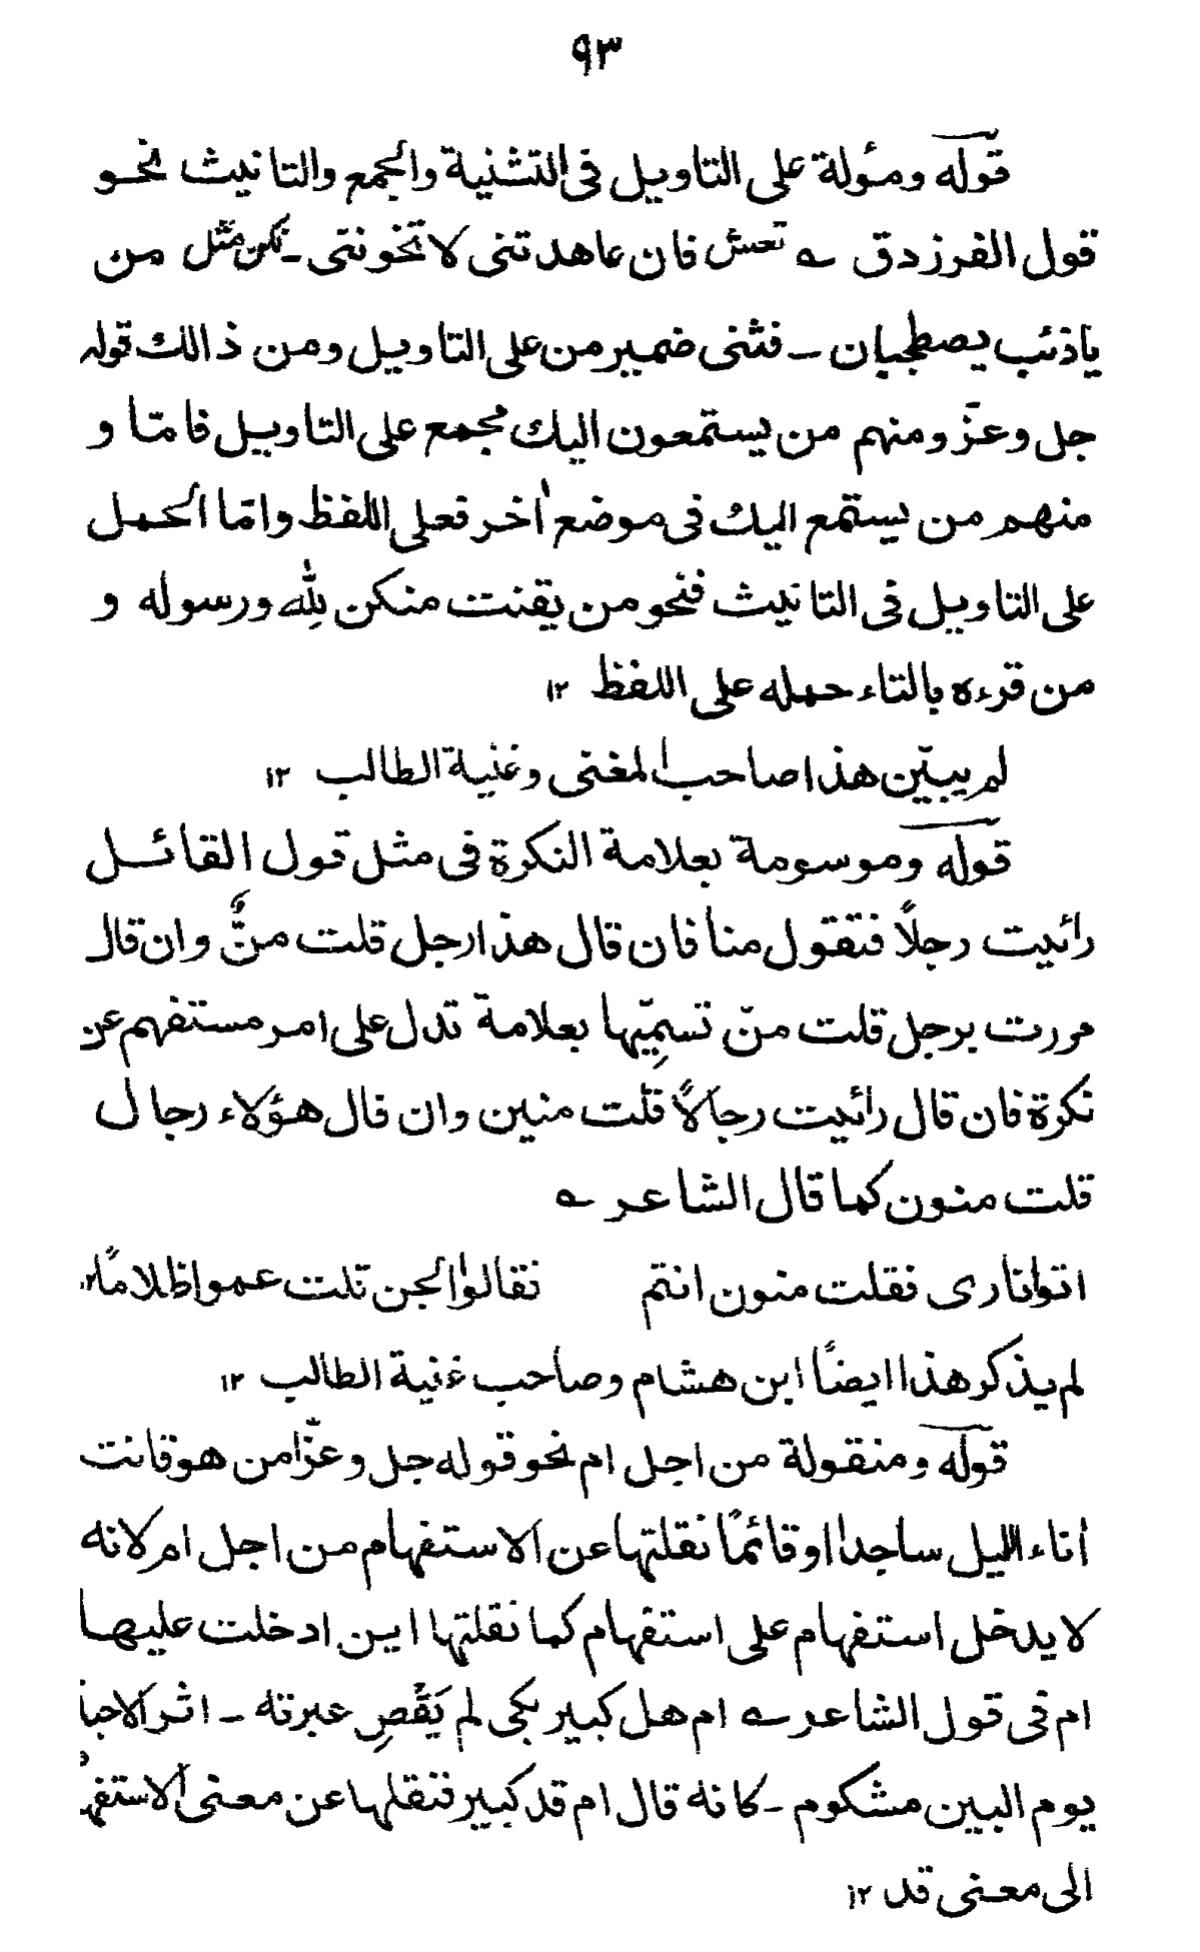 ٩٣
قوله ومؤلة على التاويل فى التثنية والجمع والتانيث نحو
قول الفرزدق ؎ تعش فان عاهدتنى لا تخوننى ـ نكن مثل من
ياذئب يصطحبان ـ فثنى ضمير من على التاويل ومن ذالك قوله
جل وعزّ ومنهم من يستمعون اليك مجمع على التاويل فامّا و
منهم من يستمع اليك فى موضع اٰخر فعلى اللفظ وامّا الحمل
على التاويل فى التانيث فنحو من يقنت منكن لِلّٰه ورسوله و
من قرءه بالتاء حمله على اللفظ ١٢
لم يبيّن هذا صاحب المغنى وغنية الطالب ١٢
قوله وموسومة بعلامة النكرة فى مثل قول القائل
رائيت رجلاً فتقول منا فان قال هذا رجل قلت منٌّ وان قال
مررت برجل قلت منّ تسمِّيها بعلامة تدل على امر مستفهم عن
نكرة فان قال رائيت رجالاً قلت منين وان قال هؤلاء رجال
قلت منون كما قال الشاعر ؎
اتوا نارى فقلت منون انتم فقالوا الجن قلت عموا ظلامًا ١٢
لم يذكر هذا ايضًا ابن هشام وصاحب غنية الطالب ١٢
قوله ومنقولة من اجل ام نحو قوله جل وعزّ امن هو قانت
اٰناء الليل ساجدا او قائمًا نقلتها عن الاستفهام من اجل ام لانه
لا يدخل استفهام على استفهام كما نقلتها اين ادخلت عليها
ام فى قول الشاعر ؎ ام هل كبير بكى لم يَقْضِ عبرته ـ اثر الاحبة
يوم البين مشكوم ـ كانه قال ام قد كبير فنقلها عن معنى الاستفهام
الى معنى قد ١٢